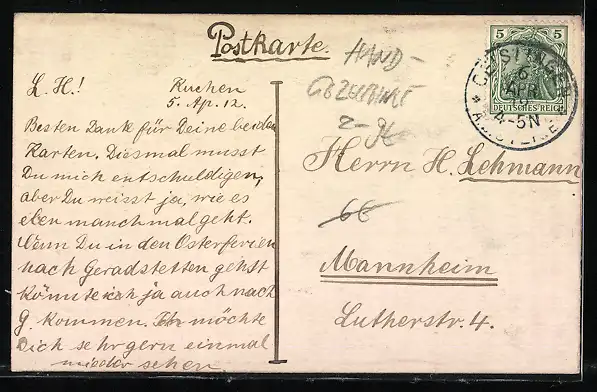 Postkarte.
L. H.! Kuchen
5. Ap. 12.
Besten Dank für Deine beiden
Karten. Diesmal musst
Du mich entschuldigen,
aber Du weisst ja, wie es
eben manchmal geht.
Wenn Du in den Osterferien
nach Geradstetten gehst
könnte ich ja auch nach
G. kommen. Ich möchte
Dich sehr gern einmal
wieder sehen
HAND-
GEZEICHNET
2-
5 5
DEUTSCHES REICH
GEISLINGEN
6
APR
4-5N
Herrn H. Lehmann
66
Mannheim
Lutherstr. 4.